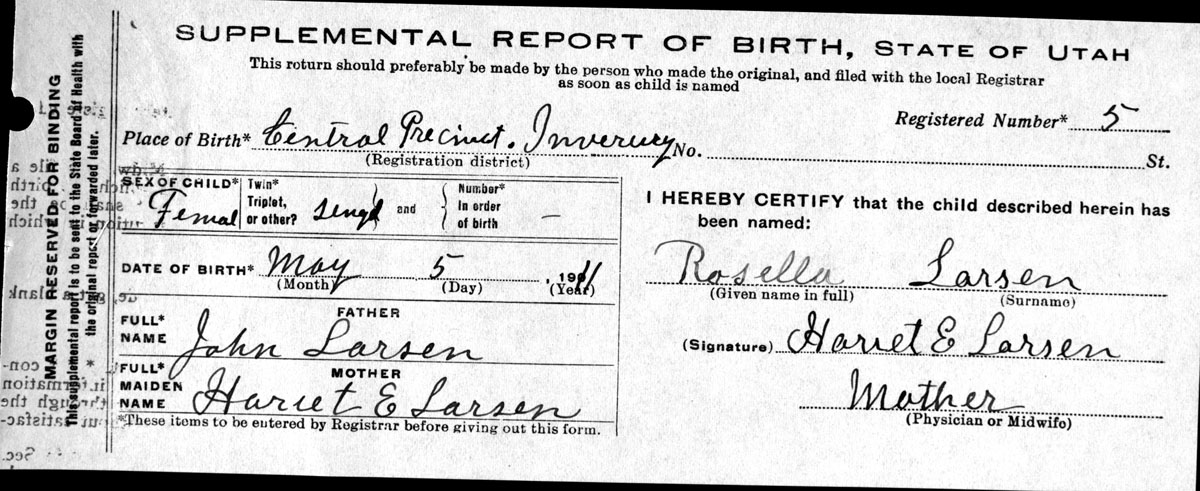 SUPPLEMENTAL REPORT OF BIRTH, STATE OF UTAH
This return should preferably be made by the person who made the original, and filed with the local Registrar
as soon as child is named
Registered Number* 5
Place of Birth* Central Precinct. Inverury No. St.
(Registration district)
SEX OF CHILD* Femal
Twin* Triplet, or other? singl and
Number* In order of birth —
DATE OF BIRTH* May 5, 1911
(Month) (Day) (Year)
FATHER
FULL* NAME John Larsen
MOTHER
FULL* MAIDEN NAME Hariet E Larsen
*These items to be entered by Registrar before giving out this form.
I HEREBY CERTIFY that the child described herein has
been named:
Rosella Larsen
(Given name in full) (Surname)
(Signature) Hariet E Larsen
Mother
(Physician or Midwife)
MARGIN RESERVED FOR BINDING
This supplemental report is to be sent to the State Board of Health with
the original report or forwarded later.